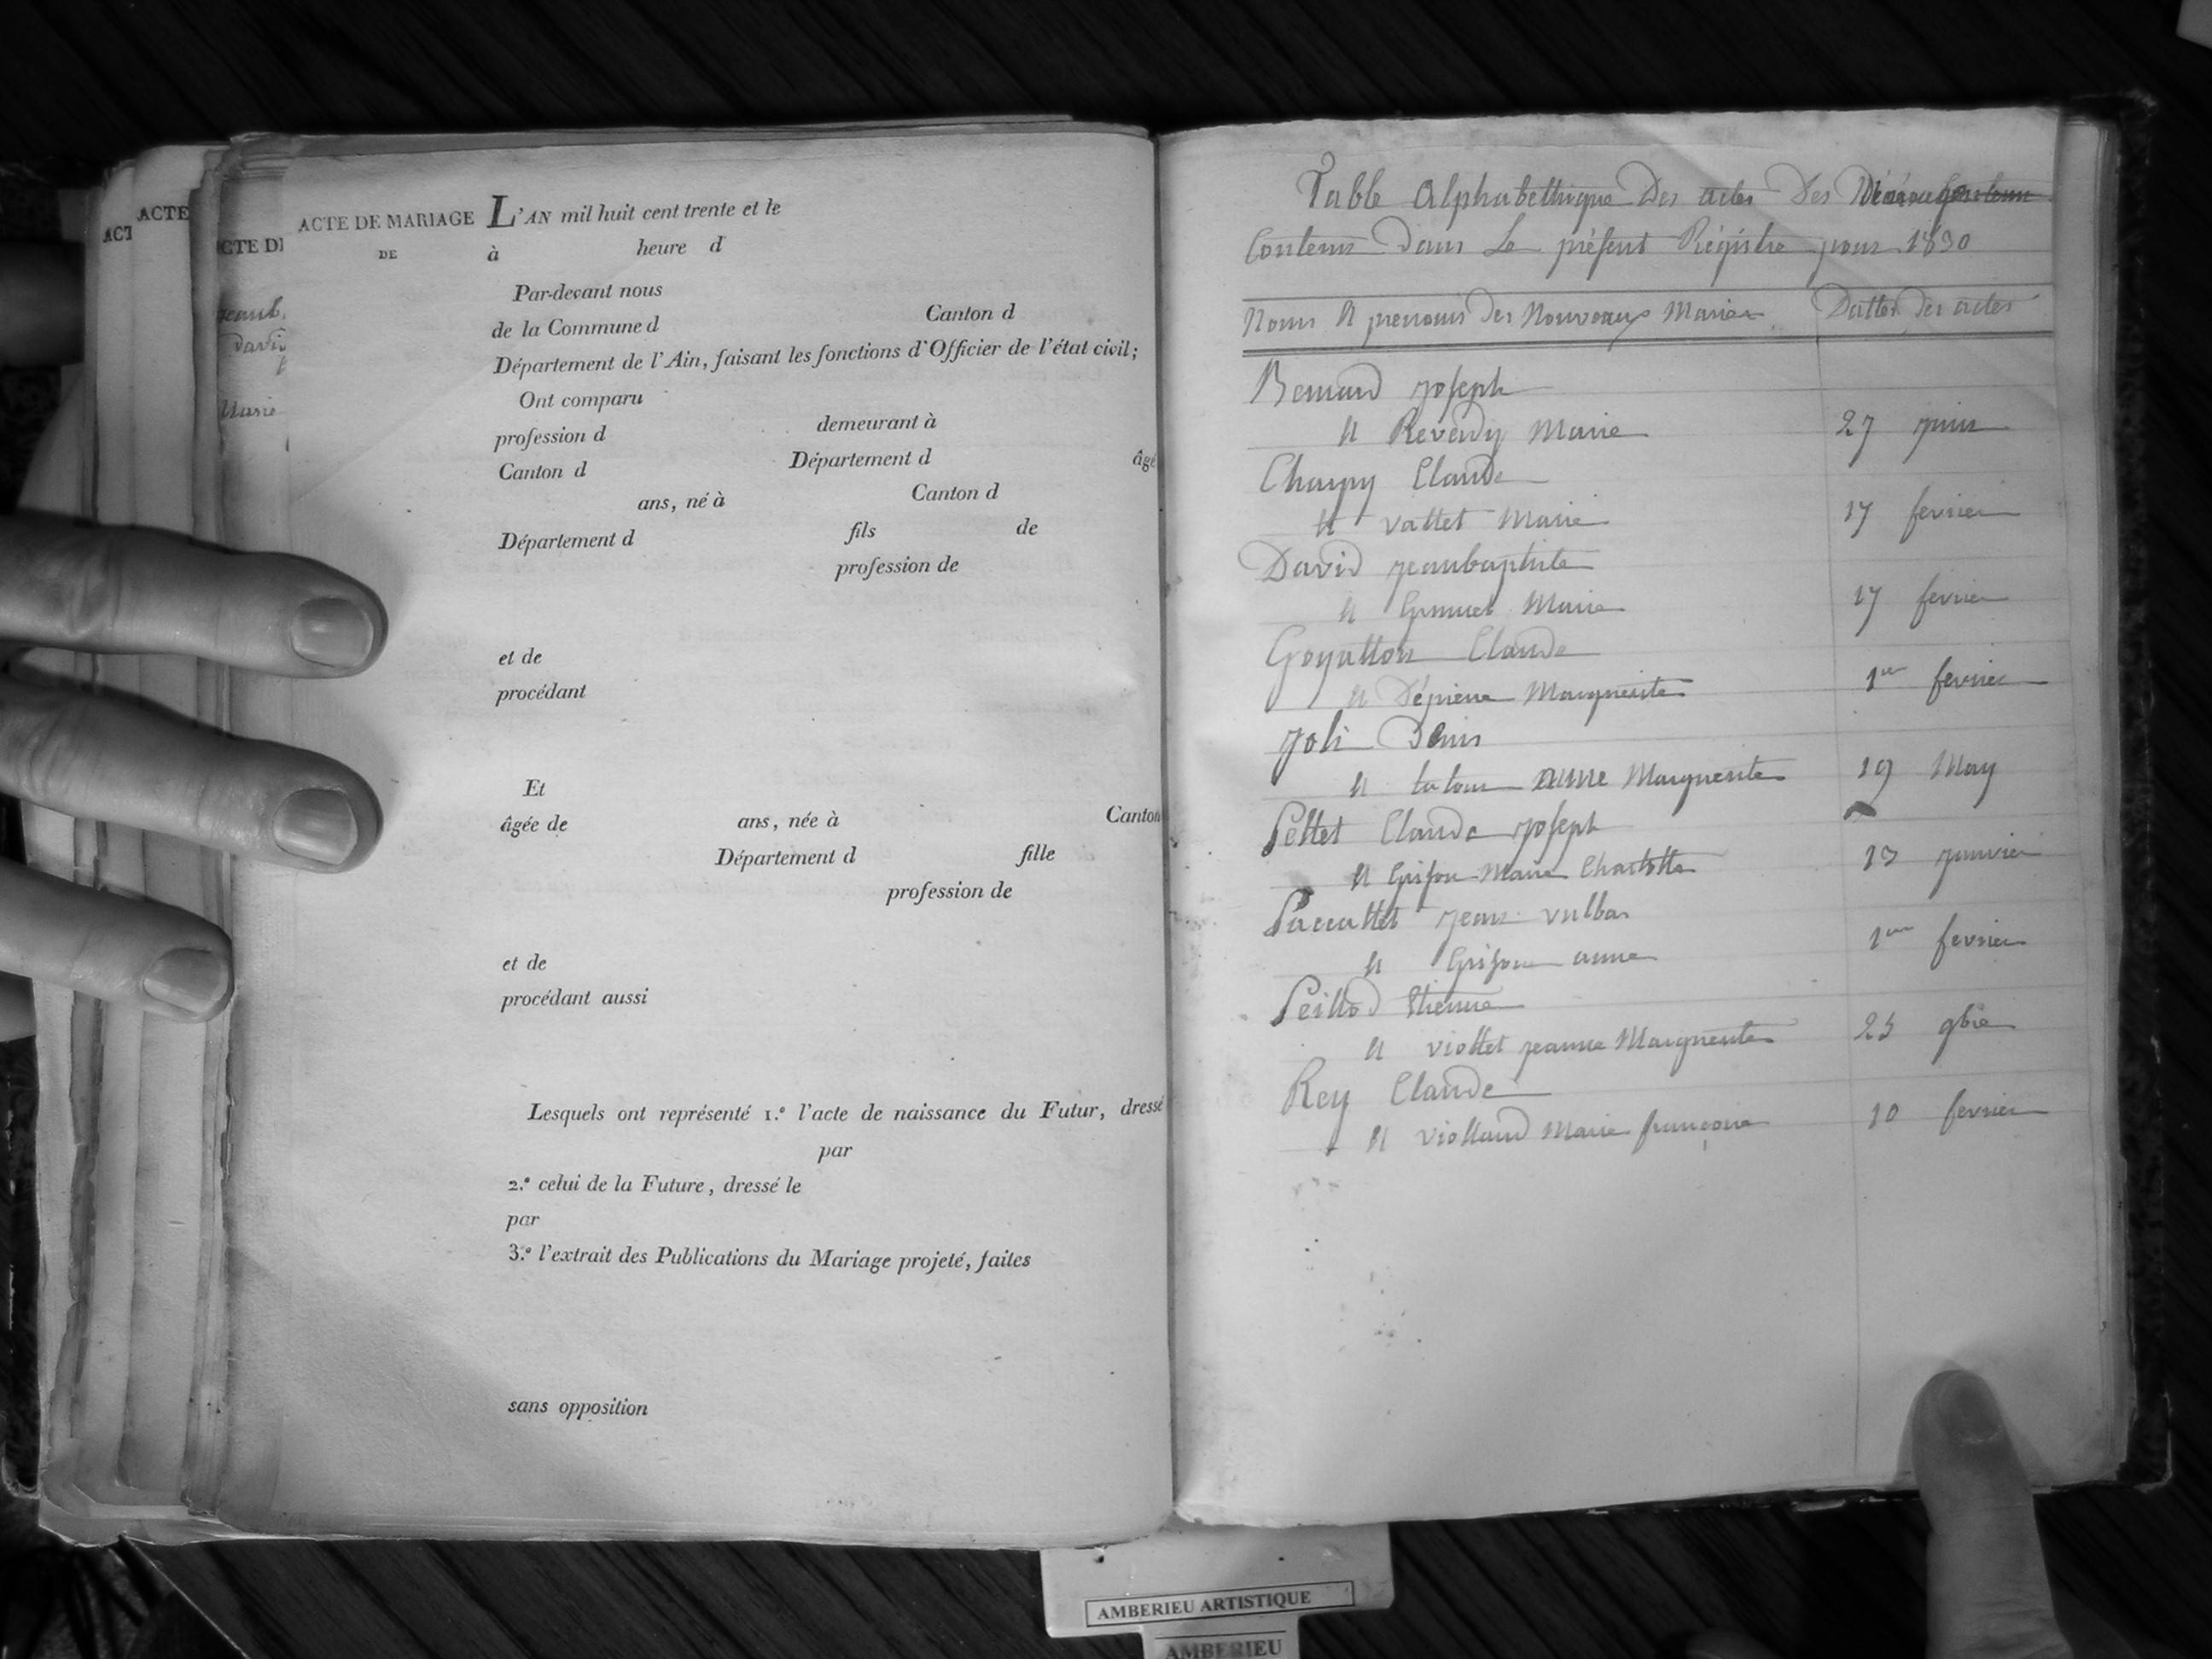 ACTE
ACT
ACTE DE
Jeanb.
David
Marie
ACTE DE MARIAGE
DE
L'AN mil huit cent trente et le
à heure d
Par-devant nous
de la Commune d Canton d
Département de l'Ain, faisant les fonctions d'Officier de l'état civil;
Ont comparu
profession d demeurant à
Canton d Département d âgé
ans, né à Canton d
Département d fils de
profession de
et de
procédant
Et
âgée de ans, née à Canton
Département d fille
profession de
et de
procédant aussi
Lesquels ont représenté 1.º l'acte de naissance du Futur, dressé
par
2.º celui de la Future, dressé le
par
3.º l'extrait des Publications du Mariage projeté, faites
sans opposition
Table Alphabethique Des actes Des
Contenus Dans Le présent Régistre pour 1830
Noms et prenoms des Nouveaux Mariés Dattes des actes
Bernard joseph
et Reverdy Marie 27 juin
Charpy Claude
et vallet Marie 17 fevrier
David jeanbaptiste
et Grumet Marie 17 fevrier
Goyatton Claude
et Dépierre Marguerite 1er fevrier
joli Denis
et latour anne Marguerite 19 May
Pettet Claude joseph
et Grison Marie Charlotte 13 janvier
Paccallet jean vulbas
et Grison anne 1er fevrier
Peillod Etienne
et viollet jeanne Marguerite 25 9bre
Rey Claude
et violland Marie françoise 10 fevrier
AMBERIEU ARTISTIQUE
AMBERIEU